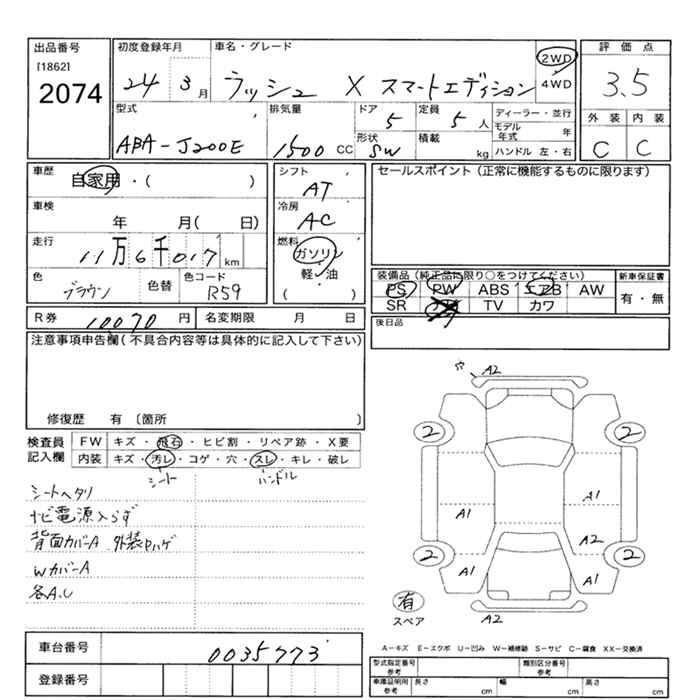 出品番号
[1862]
2074
初度登録年月
24 3月
車名・グレード
ラッシュ X スマートエディション
2WD
4WD
評価点
3.5
型式
ABA-J200E
排気量
1500 CC
ドア
5
定員
5人
形状
SW
積載
kg
ディーラー・並行
モデル年式 年
ハンドル 左・右
外装 内装
C C
車歴
自家用・( )
車検
年 月( 日)
走行
11万6千017 km
色
ブラウン
色替
色コード
R59
シフト
AT
冷房
AC
燃料
ガソリン
軽油
( )
セールスポイント(正常に機能するものに限ります)
装備品(純正品に限り○をつけてください)
PS PW ABS エアB AW
SR TV カワ
新車保証書
有・無
R券 10070 円
名変期限 月 日
後日品
注意事項申告欄(不具合内容等は具体的に記入して下さい)
修復歴 有〔箇所 〕
検査員記入欄
FW キズ・飛石・ヒビ割・リペア跡・X要
内装 キズ・汚レ・コゲ・穴・スレ・キレ・破レ
シート ハンドル
シートヘタリ
ナビ電源入らず
背面カバーA 外装Pハゲ
WカバーA
各A.U
A2
2 2
A1
A1 A2
2 2
A1 A1
A2
有
スペア
A-キズ E-エクボ U-凹み W-補修跡 S-サビ C-腐食 XX-交換済
車台番号
0035773
登録番号
型式指定番号 参考
類別区分番号 参考
車庫証明用 参考
長さ cm
幅 cm
高さ cm